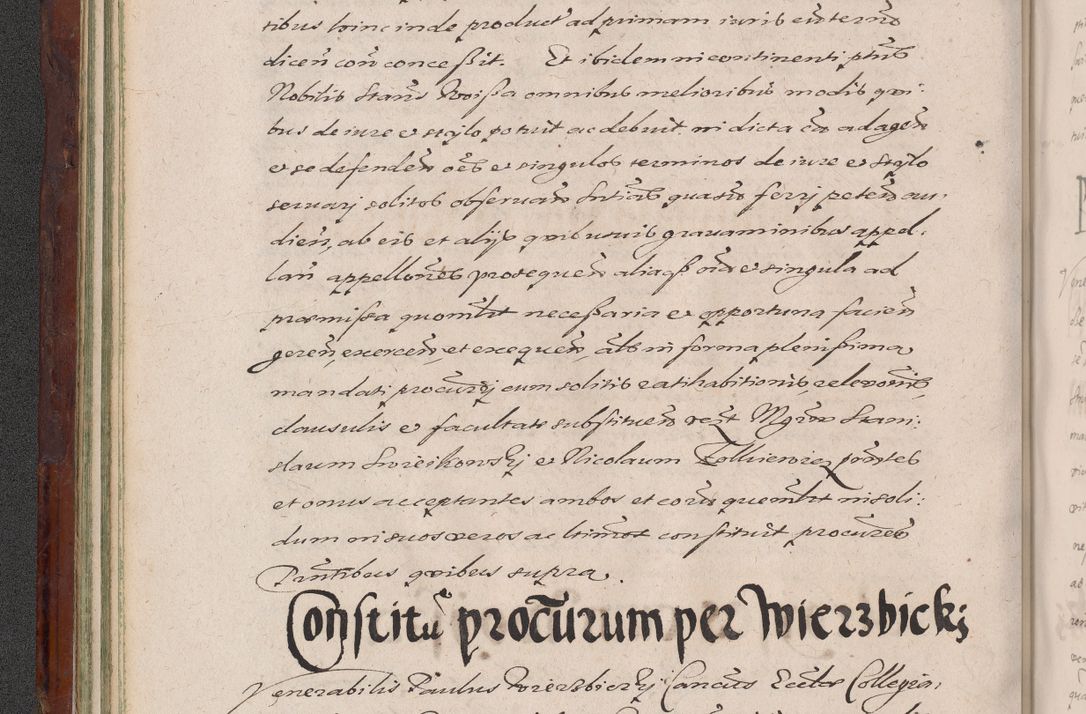 tibus hinc inde product ad primam iuris eius term̃
dicen̄ con̄ concessit. Et ibidem in continenti pñs
Nobilis Stan̄s Woissa omnibus melioribus modis qui:
bus de iure et stylo potuit ac debuit, in dicta cā ad agen̄
et se defenden̄ oēs et singulos terminos de iure et stylo
seruarj solitos obseruan̄ sn̄tias quascū ferrj peten̄ au:
dien̄, ab eis et alijs quibusuis grauaminibus appel:
lan̄ appellōnes prosequen̄ aliaqß oīa et singula ad
præmissa quomlt necessaria et opportuna facien̄
geren̄, exercen̄, et exequen̄, als in forma plenissima
mandati procurōj cum solitis ratihabitionis, releuōnis,
clausulis et facultate substituen̄ Mgrōw Stani:
slaum Swieikowskj et Nicolaum Zolkiewicz pñtes
et onus acceptantes ambos et eorū quemlt in soli:
dum in suos veros ac ltimōs constituit procures
Pn̄tibus quibus supra.
Constitu° procūrum per Wierzbickj
Venerabilis Paulus Wierzbiczkj Cancus Eccltæ Collegia: